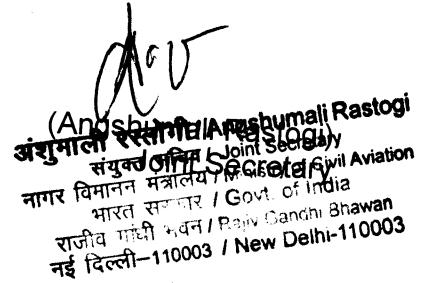 (Angshumali Rastogi)
Joint Secretary
अंशुमाली रस्तोगी / Angshumali Rastogi
संयुक्त सचिव / Joint Secretary
नागर विमानन मंत्रालय / Ministry of Civil Aviation
भारत सरकार / Govt. of India
राजीव गांधी भवन / Rajiv Gandhi Bhawan
नई दिल्ली–110003 / New Delhi-110003